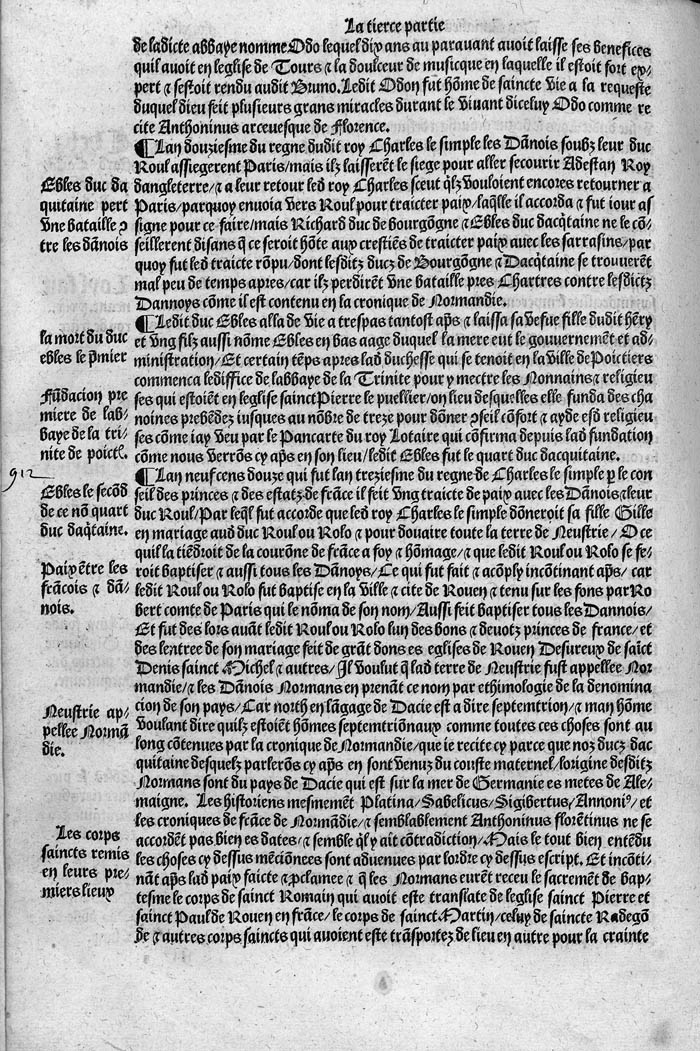 La tierce partie
de ladicte abbaye nomme Odo lequel dix ans au paravant avoit laisse ses benefices
quil avoit en leglise de Tours ⁊ la doulceur de musicque en laquelle il estoit fort ex⸗
pert ⁊ sestoit rendu audit Bruno. Ledit Odon fut hōme de saincte vie a la requeste
duquel dieu feit plusieurs grans miracles durant le vivant diceluy Odo comme re
cite Anthoninus arcevesque de Florence.
¶ Lan douziesme du regne dudit roy Charles le simple les Dānois soubz leur duc
Roul assiegerent Paris/mais ilz laisserēt le siege pour aller secourir Adestan Roy
Ebles duc da
quitaine pert
vne bataille ɔ
tre les dānois
dangleterre/⁊ a leur retour led roy Charles sceut q̄lz vouloient encores retourner a
Paris/parquoy envoia vers Roul pour traicter paix/laq̄lle il accorda ⁊ fut iour as
signe pour ce faire/mais Richard duc de bourgōgne ⁊ Ebles duc dacq̄taine ne le cō⸗
seillerent disans q̄ ce seroit hōte aux crestiēs de traicter paix avec les sarrasins/par
quoy fut led traicte rōpu/dont lesditz ducz de Bourgōgne ⁊ Dacq̄taine se trouverēt
mal peu de temps apres/car ilz perdirēt vne bataille pres Chartres contre lesdictz
Dannoys cōme il est contenu en la cronique de Normandie.
la mort du duc
ebles le p̄mier
¶ Ledit duc Ebles alla de vie a trespas tantost ap̄s ⁊ laissa sa vefue fille dudit hēry
et vng filz aussi nōme Ebles en bas aage duquel la mere eut le gouvernemēt et ad⸗
ministration/Et certain tēps apres lad duchesse qui se tenoit en la ville de Poictiers
commenca lediffice de labbaye de la Trinite pour y mectre les Nonnains ⁊ religieu
Fūdacion pre
miere de lab⸗
baye de la tri⸗
nite de poictī.
ses qui estoiēt en leglise sainct Pierre le puellier/on lieu desquelles elle funda des cha
noines prebēdez iusques au nōbre de treze pour dōner ɔseil cōfort ⁊ ayde esd religieu
ses cōme iay veu par le Pancarte du roy Lotaire qui cōfirma depuis lad fundation
cōme nous verrōs cy ap̄s en son lieu/ledit Ebles fut le quart duc dacquitaine.
912
Ebles le secōd
de ce nō quart
duc daq̄taine.
¶ Lan neuf cens douze qui fut lan treziesme du regne de Charles le simple p̄ le con
seil des princes ⁊ des estatz de frāce il feit vng traicte de paix avec les Dānois ⁊ leur
duc Roul/Par leq̄l fut accorde que led roy Charles le simple dōneroit sa fille Gille
en mariage aud duc Roul ou Rolo ⁊ pour douaire toute la terre de Neustrie/O ce
quil la tiēdroit de la courōne de frāce a foy ⁊ hōmage/⁊ que ledit Roul ou Rolo se fe⸗
Paix ētre les
frācois ⁊ dā⸗
nois.
roit baptiser ⁊ aussi tous les Dānoys/Ce qui fut fait ⁊ acōply incōtinant ap̄s/ car
ledit Roul ou Rolo fut baptise en la ville ⁊ cite de Rouen ⁊ tenu sur les fons par Ro
bert comte de Paris qui le nōma de son nom/Aussi feit baptiser tous les Dannois/
Et fut des lors avāt ledit Roul ou Rolo lun des bons ⁊ devotz princes de france/et
des lentree de son mariage feit de grāt dons es eglises de Rouen Desureux de saīct
Denis sainct Michel ⁊ autres/Il voulut q̄ lad terre de Neustrie fust appellee Nor
mandie/⁊ les Dānois Normans en prenāt ce nom par ethimologie de la denomina
Neustrie ap⸗
pellee Normā
die.
cion de son pays/Car north en lāgage de Dacie est a dire septemtrion/⁊ man hōme
voulant dire quilz estoiēt hōmes septemtriōnaux comme toutes ces choses sont au
long cōtenues par la cronique de Normandie/que ie recite cy parce que noz ducz dac
quitaine desquelz parlerōs cy ap̄s en sont venuz du couste maternel/lorigine desditz
Normans sont du pays de Dacie qui est sur la mer de Germanie es metes de Ale⸗
maigne. Les historiens mesmemēt Platina/Sabelicus/Sigibertus/Annoniꝰ/et
les croniques de frāce de Normādie/⁊ semblablement Anthoninus florētinus ne se
Les corps
saincts remis
en leurs pre⸗
miers lieux
accordēt pas bien es dates/⁊ semble q̄l y ait cōtradiction/Mais le tout bien entēdu
les choses cy dessus mēciōnees sont advenues par lordre cy dessus escript. Et incōti⸗
nāt ap̄s lad paix faicte ⁊ ꝓclamee ⁊ q̄ les Normans eurēt receu le sacremēt de bap⸗
tesme le corps de sainct Romain qui avoit este translate de leglise sainct Pierre et
sainct Paul de Rouen en frāce/le corps de sainct Martin/celuy de saincte Radegō
de ⁊ autres corps saincts qui avoient este trāsportez de lieu en autre pour la crainte